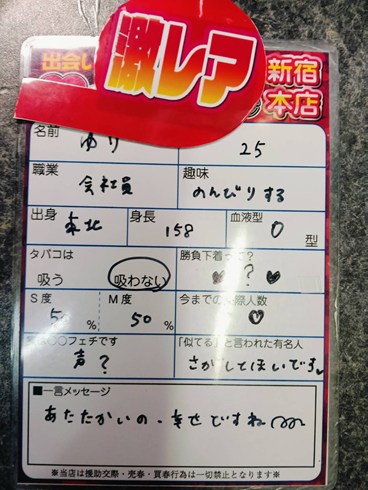 激レア
出会い
新宿
本店
名前 ゆり 25
職業 会社員 趣味 のんびりする
出身 東北 身長 158 血液型 O 型
タバコは 勝負下着って?
吸う 吸わない ♥?♥
S度 50% M度 50% 今までの 際人数 ♡
○○フェチです 「似てる」と言われた有名人
声? さがしてほしいです
■一言メッセージ
あたたかいの、幸せですね
※当店は援助交際・売春・買春行為は一切禁止となります※